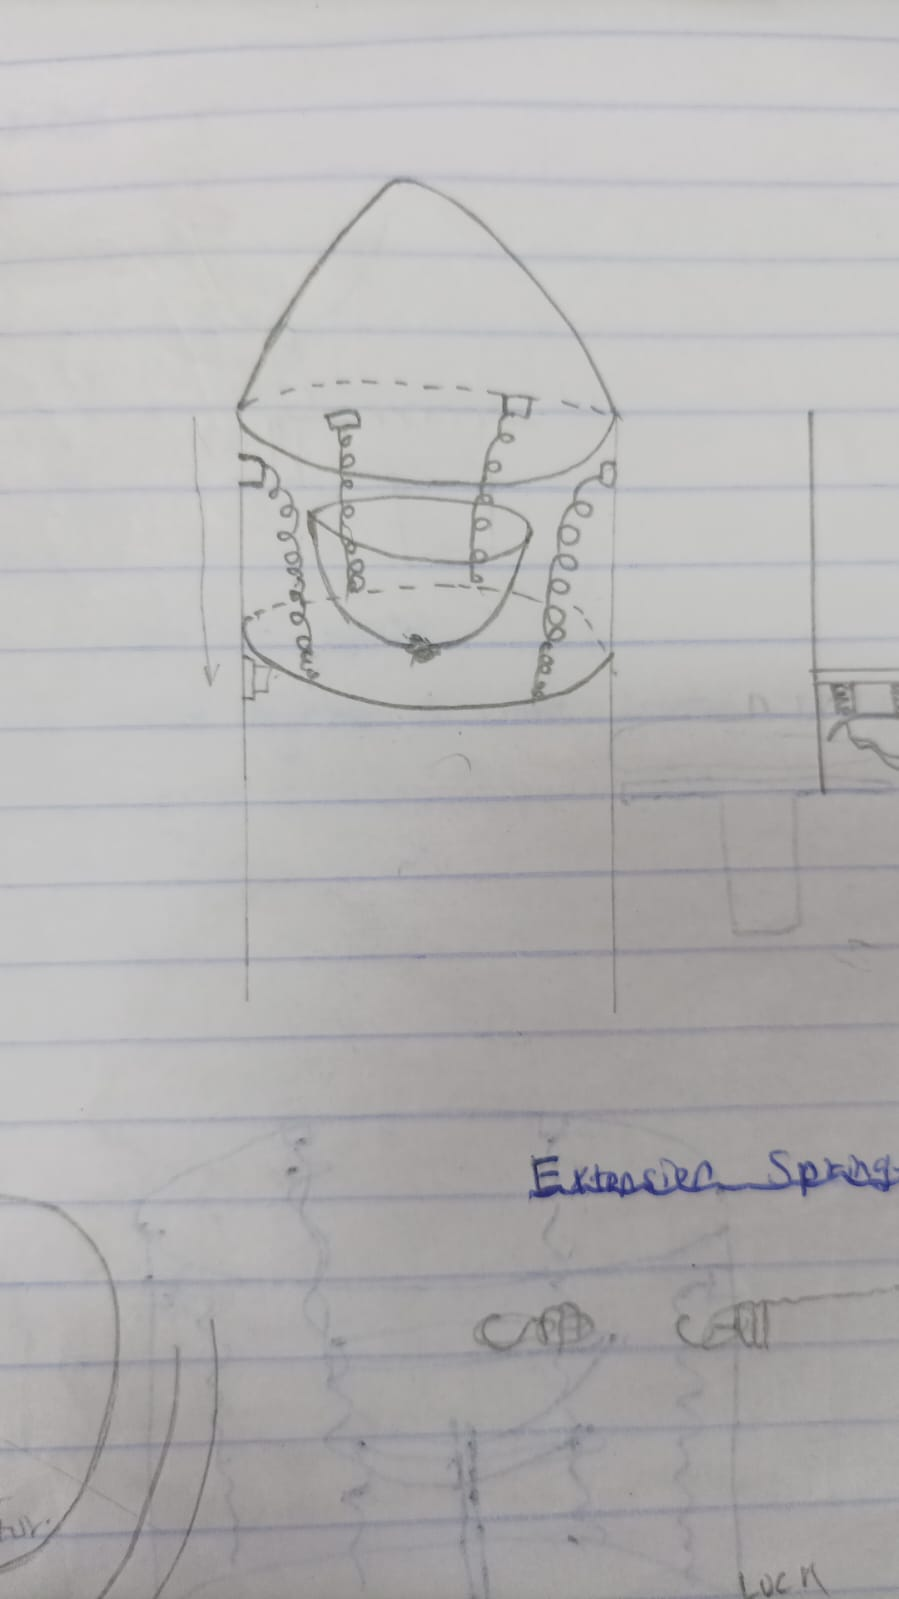 Extension Spring
LOCK